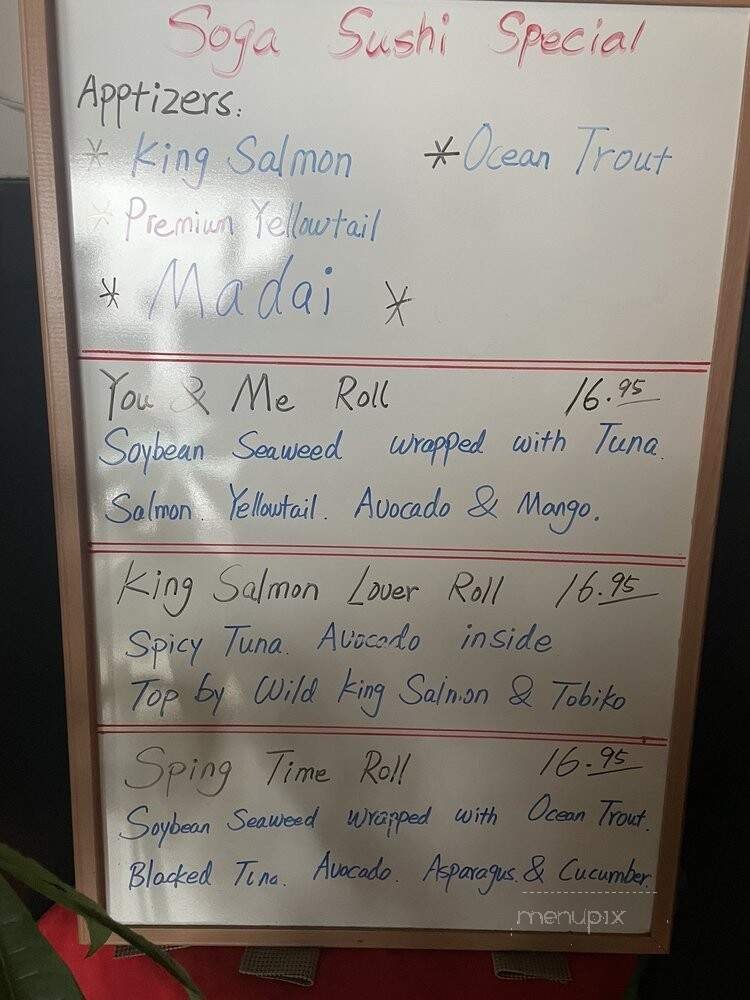 Soga Sushi Special
Apptizers:
* King Salmon * Ocean Trout
* Premium Yellowtail
* Madai *
You & Me Roll 16.95
Soybean Seaweed wrapped with Tuna.
Salmon. Yellowtail. Avocado & Mango.
King Salmon Lover Roll 16.95
Spicy Tuna. Avocado inside
Top by Wild King Salmon & Tobiko
Sping Time Roll 16.95
Soybean Seaweed wrapped with Ocean Trout.
Blacked Tuna. Avocado. Asparagus. & Cucumber.
menupix